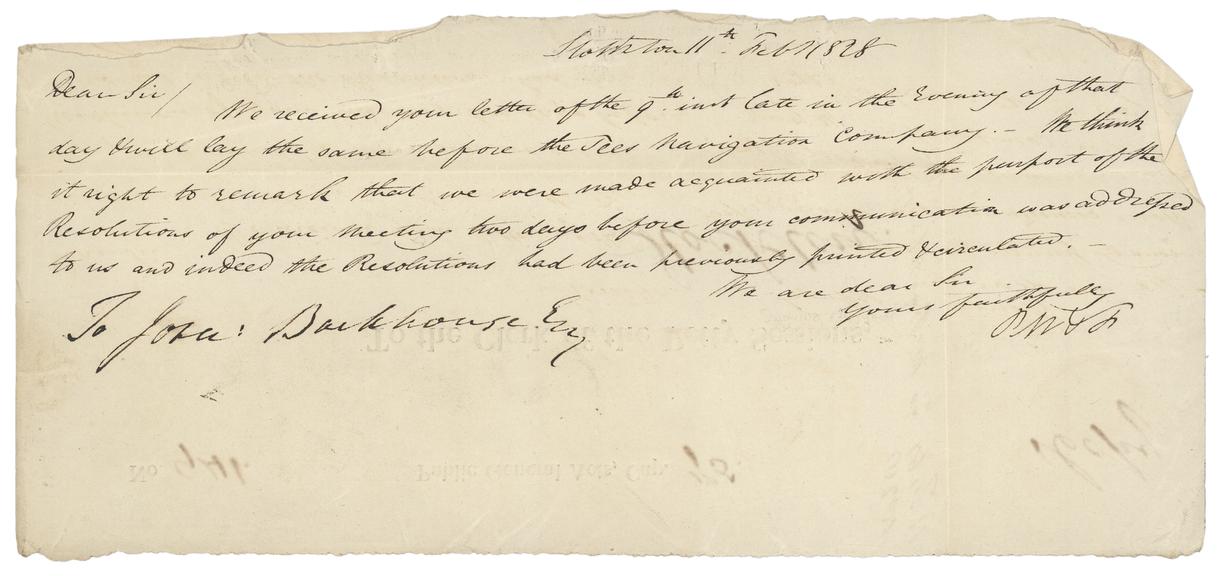 Stockton 11th Feby 1828
Dear Sir/
We received your letter of the 9th inst late in the Evening of that
day & will lay the same before the Tees Navigation Company. – We think
it right to remark that we were made acquainted with the purport of the
Resolutions of your Meeting two days before your communication was addressed
to us and indeed the Resolutions had been previously printed & circulated. –
We are dear Sir
yours faithfully
To Jona: Backhouse Esq
To the Clerk of the Petty Sessions,
No.
Public General Acts, Cap.